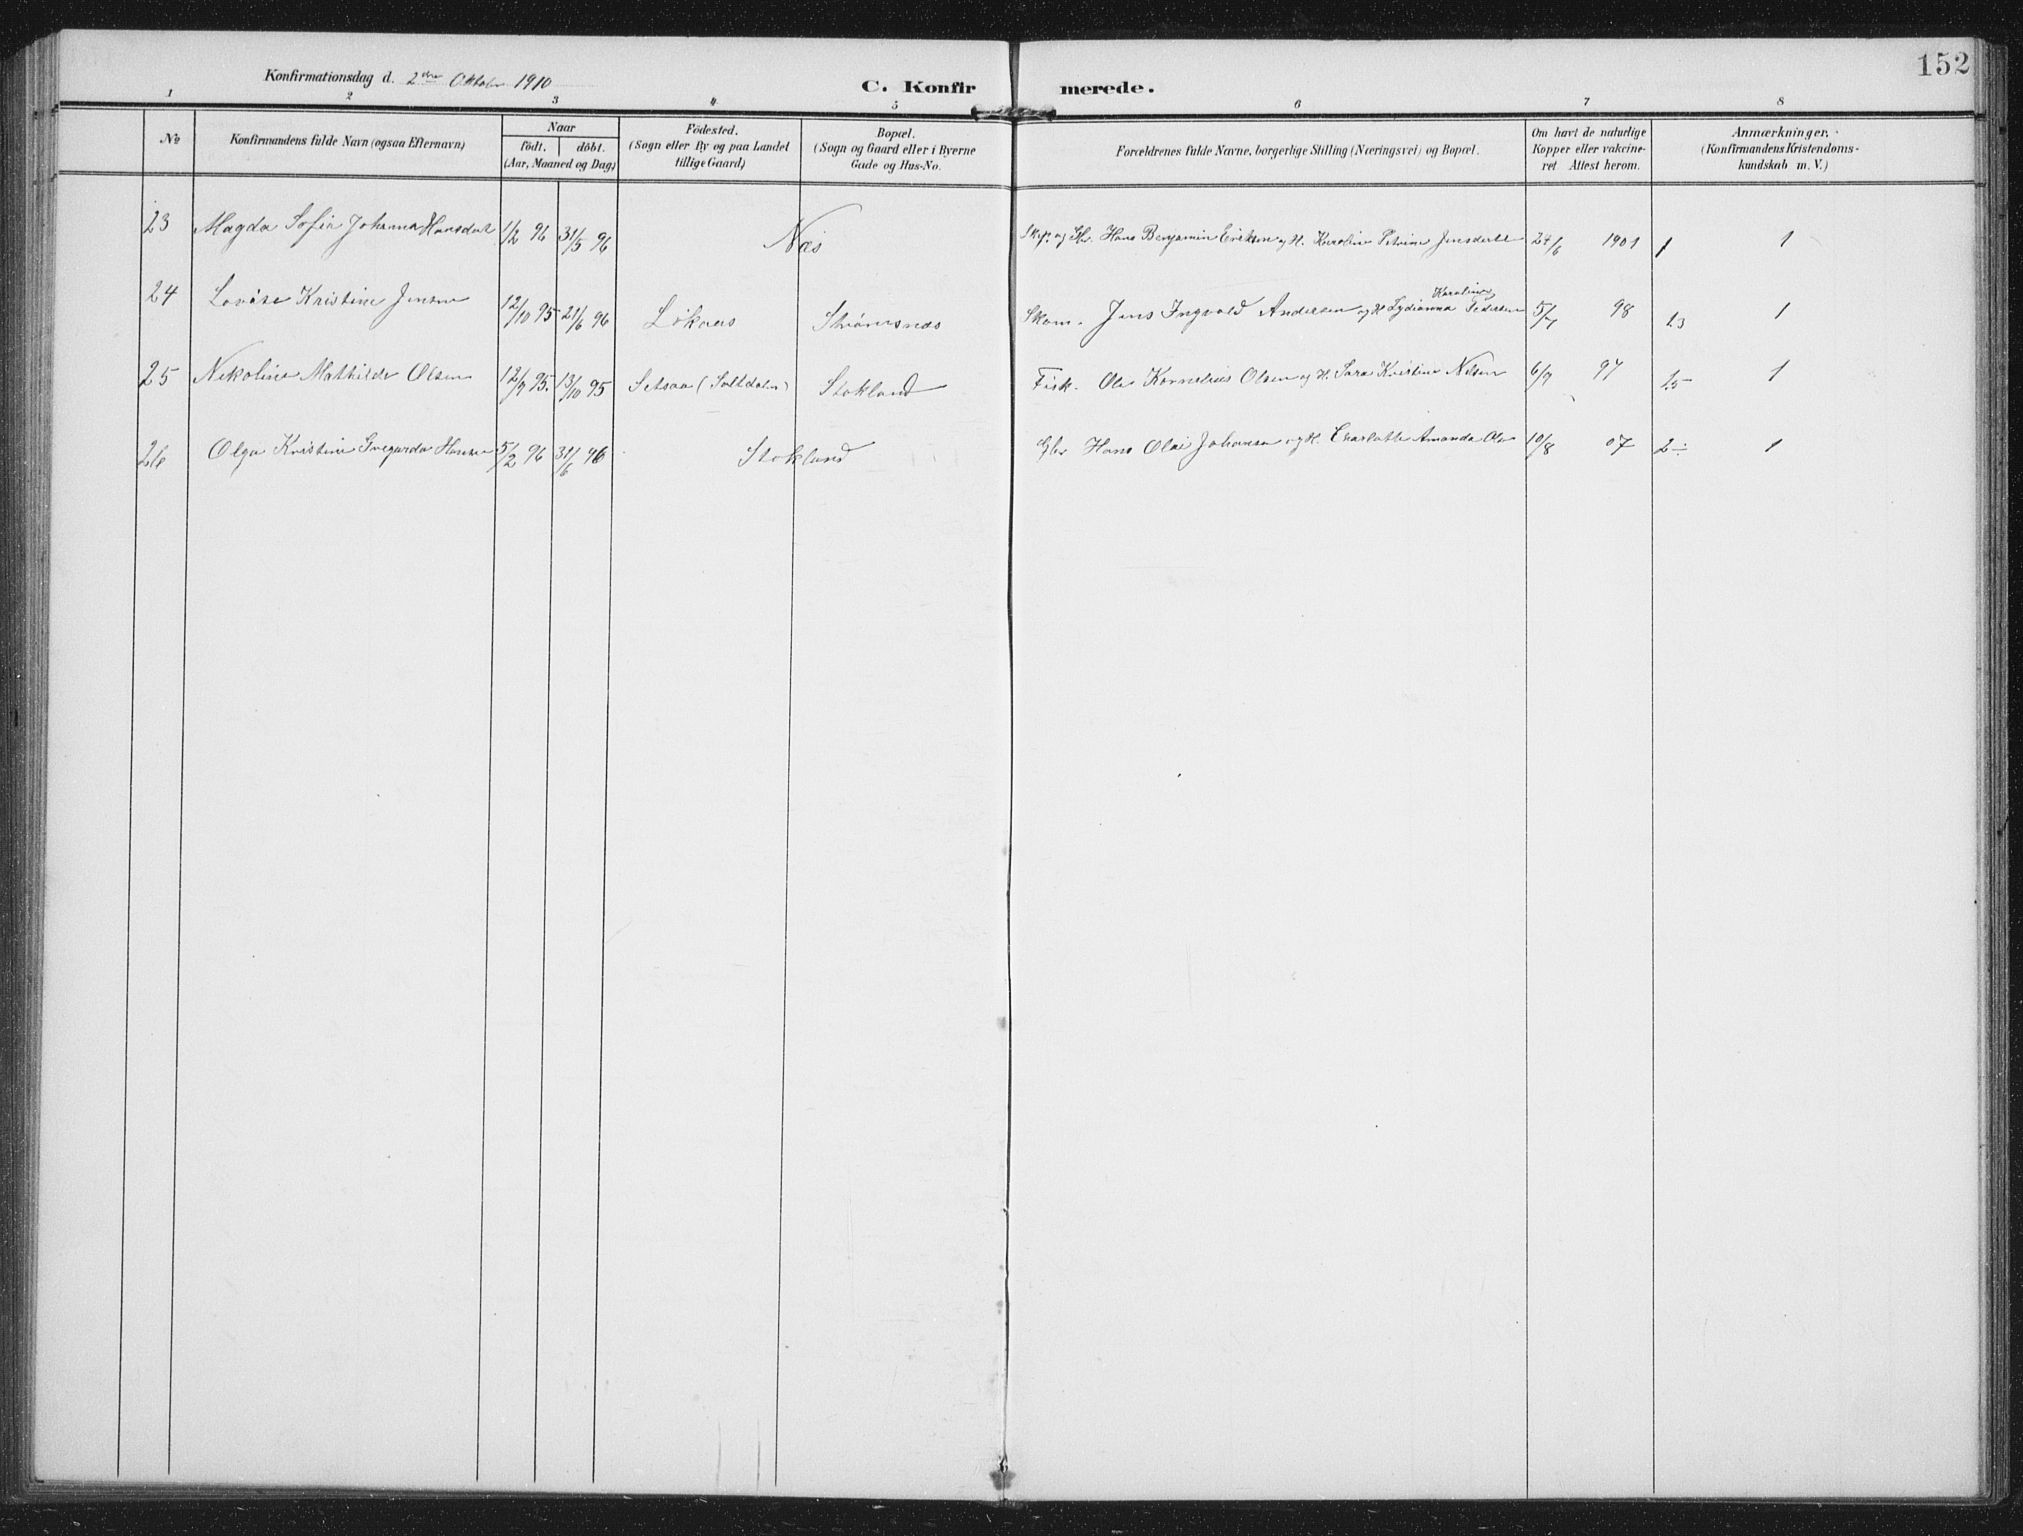 152
Konfirmationsdag d. 2den Oktober 1910
C. Konfirmerede.
1 2 3 4 5 6 7 8
No
Konfirmandens fulde Navn (ogsaa Efternavn)
Naar
födt. döbt.
(Aar, Maaned og Dag)
Födested.
(Sogn eller By og paa Landet
tillige Gaard)
Bopæl.
(Sogn og Gaard eller i Byerne
Gade og Hus-No.
Forældrenes fulde Navne, borgerlige Stilling (Næringsvei) og Bopæl.
Om havt de naturlige
Kopper eller vakcine-
ret Attest herom.
Anmærkninger.
(Konfirmandens Kristendoms-
kundskab m. V.)
23 Magda Sofie Johanna Hansdat 1/2 96 31/5 96 Næs Skip. og Gbr. Hans Benjamin Eriksen og H. Karoline Petrine Jensdertt 24/6 1901 1 1
24 Lovise Kristine Jensen 12/10 95 21/6 96 Löknæs Strömsnæs Skom. Jens Ingvald Andersen og H Lydianna Karoline Pedersen 5/7 98 1.3 1
25 Nikoline Mathilde Olsen 12/9 95. 13/10 95 Setsaa (Saltdalen) Stokland Fisk. Ole Kornelius Olsen og H. Sara Kristine Nilsen 6/9 97 1.5 1
26 Olga Kristine Hansen 5/2 96 31/6 96 Stokland Gbr Hans Olai Johansen og H. Charlotte Amanda Ols 10/8 07 2÷ 1